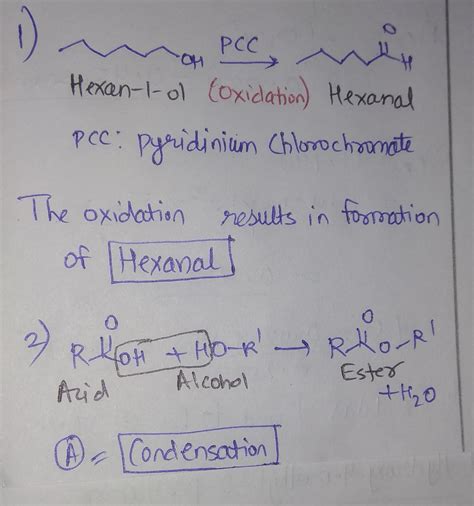 1) OH PCC O H
Hexan-1-ol (oxidation) Hexanal
PCC: Pyridinium Chlorochromate
The oxidation results in formation
of Hexanal
2) R O OH + HO-R' → R O O-R'
Acid Alcohol Ester
+H2O
A = Condensation